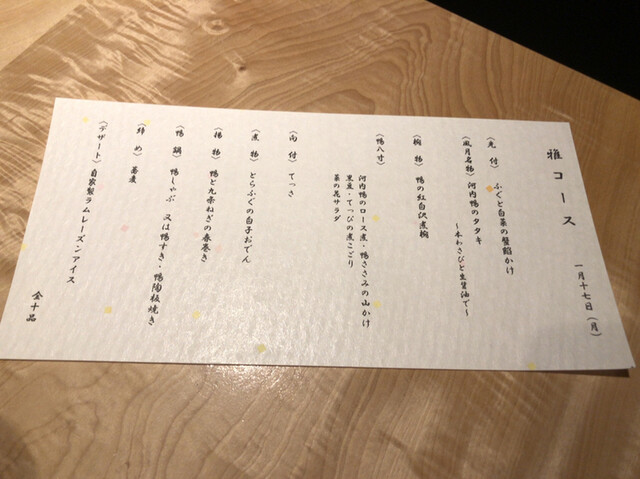 雅コース
一月十七日(月)
〈先付〉ふぐと白菜の蟹餡かけ
〈風月名物〉河内鴨のタタキ
~本わさびと生醤油で~
〈椀物〉鴨の紅白沢煮椀
〈鴨八寸〉
河内鴨のロース煮・鴨ささみの山かけ
黒豆・てっぴの煮こごり
菜の花サラダ
〈向付〉てっさ
〈煮物〉とらふぐの白子おでん
〈揚物〉鴨と九条ねぎの春巻き
〈鴨鍋〉鴨しゃぶ 又は鴨すき・鴨陶板焼き
〈締め〉蕎麦
〈デザート〉自家製ラムレーズンアイス
全十品